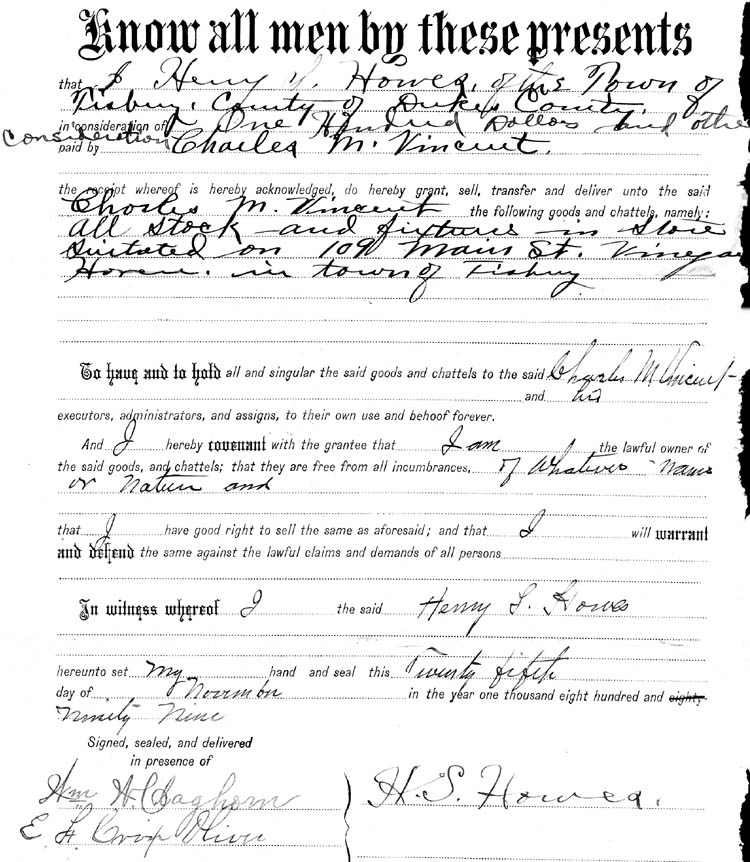 Know all men by these presents
that I Henry S. Howes, of the Town of
Tisbury, County of Dukes County, &
in consideration of One Hundred Dollars and other
consideration
paid by Charles M. Vincent.
the receipt whereof is hereby acknowledged, do hereby grant, sell, transfer and deliver unto the said
Charles M. Vincent the following goods and chattels, namely:
all stock and fixtures in store
Situated on Main St. Vineyard
Haven. in town of Tisbury
To have and to hold all and singular the said goods and chattels to the said Charles M Vincent
and his
executors, administrators, and assigns, to their own use and behoof forever.
And I hereby covenant with the grantee that I am the lawful owner of
the said goods, and chattels; that they are free from all incumbrances, of whatever name
or nature and
that I have good right to sell the same as aforesaid; and that I will warrant
and defend the same against the lawful claims and demands of all persons
In witness whereof I the said Henry S. Howes
hereunto set my hand and seal this Twenty fifth
day of Novembr in the year one thousand eight hundred and eighty-
Ninety Nine
Signed, sealed, and delivered
in presence of
Wm A. Claghorn
H. S. Howes.
E